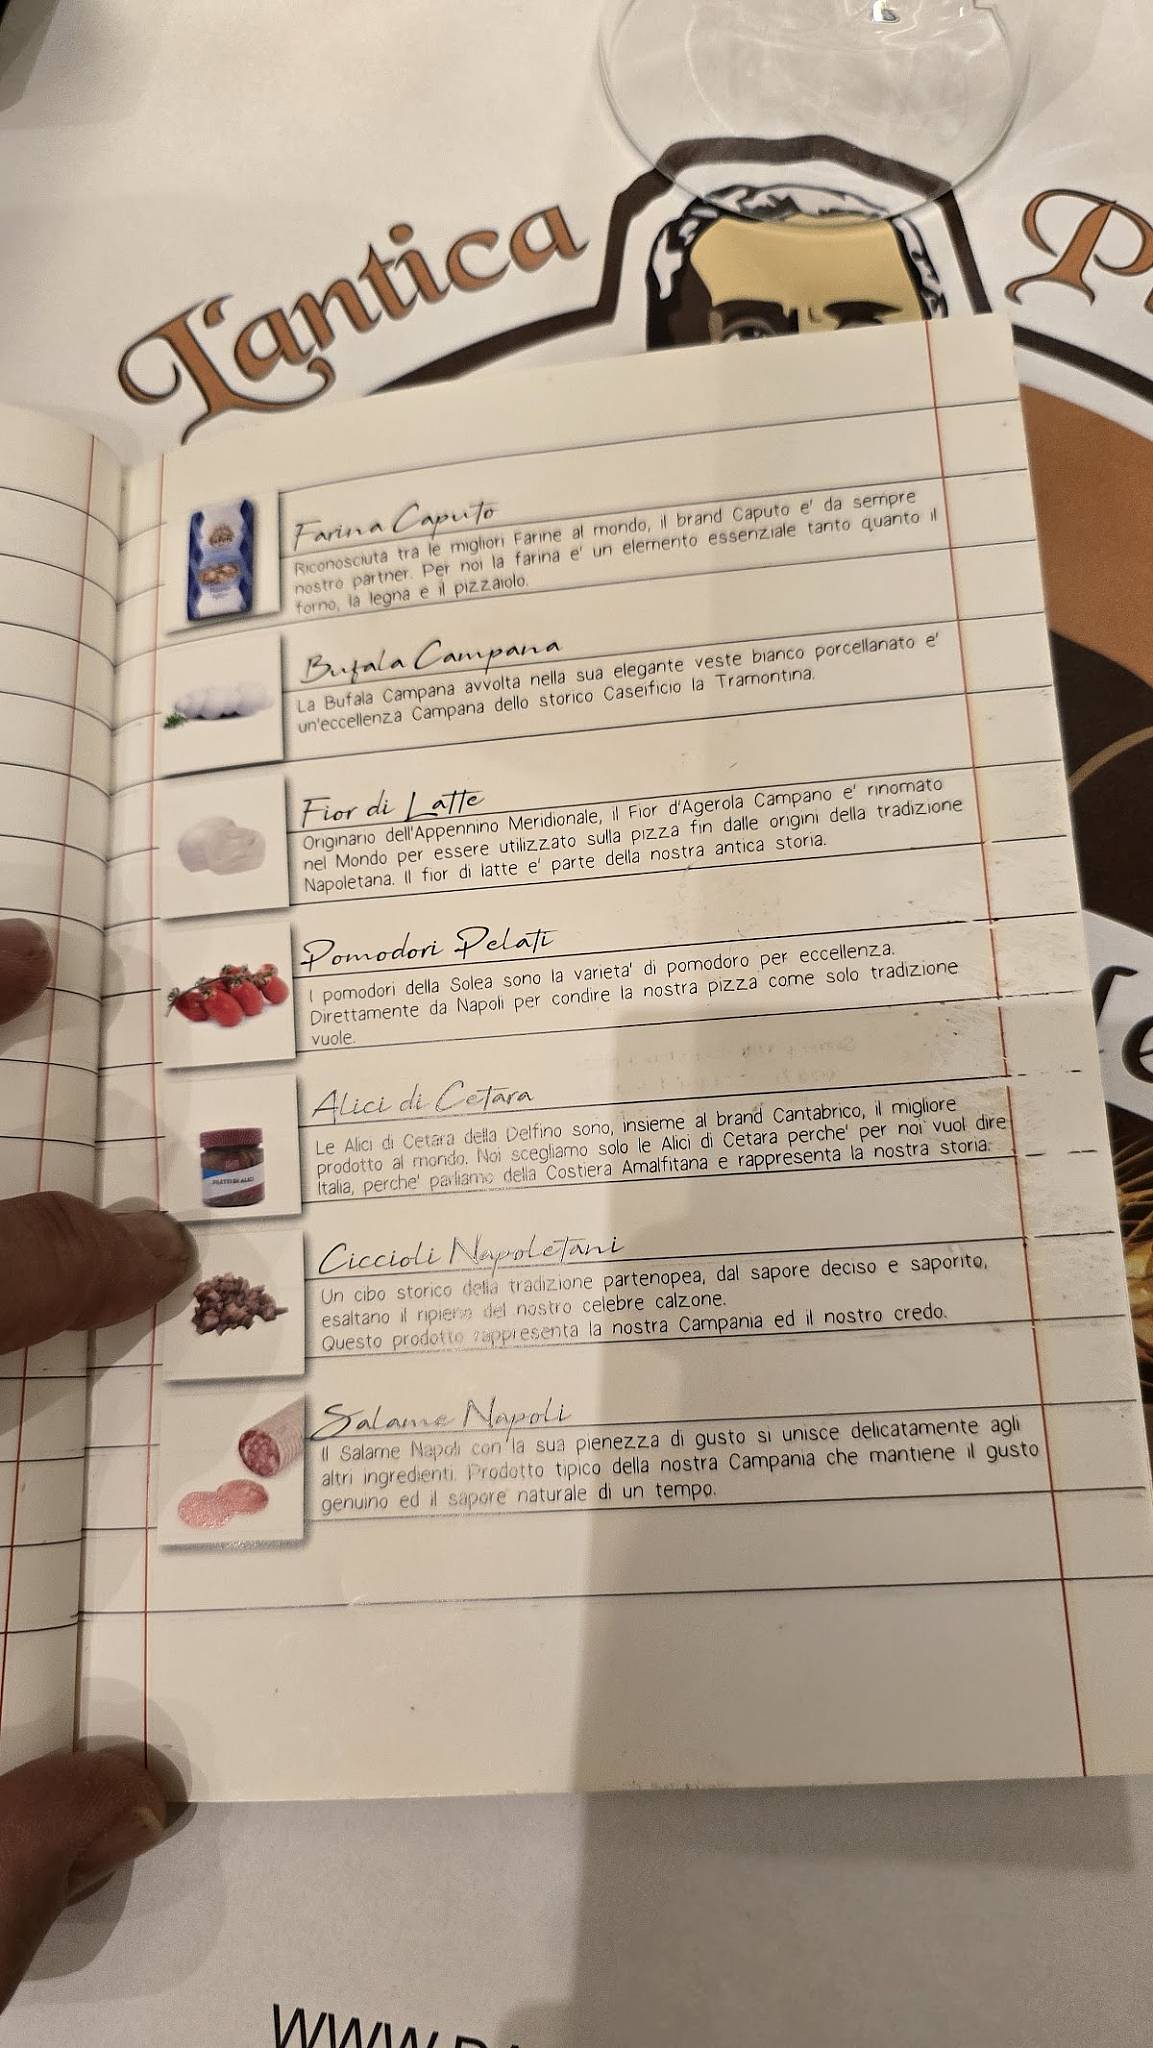 L'antica
Farina Caputo
Riconosciuta tra le migliori Farine al mondo, il brand Caputo e' da sempre
nostro partner. Per noi la farina e' un elemento essenziale tanto quanto il
forno, la legna e il pizzaiolo.
Bufala Campana
La Bufala Campana avvolta nella sua elegante veste bianco porcellanato e'
un'eccellenza Campana dello storico Caseificio la Tramontina.
Fior di Latte
Originario dell'Appennino Meridionale, il Fior d'Agerola Campano e' rinomato
nel Mondo per essere utilizzato sulla pizza fin dalle origini della tradizione
Napoletana. Il fior di latte e' parte della nostra antica storia.
Pomodori Pelati
I pomodori della Solea sono la varieta' di pomodoro per eccellenza.
Direttamente da Napoli per condire la nostra pizza come solo tradizione
vuole.
Alici di Cetara
Le Alici di Cetara della Delfino sono, insieme al brand Cantabrico, il migliore
prodotto al mondo. Noi scegliamo solo le Alici di Cetara perche' per noi vuol dire
Italia, perche' parliamo della Costiera Amalfitana e rappresenta la nostra storia.
Ciccioli Napoletani
Un cibo storico della tradizione partenopea, dal sapore deciso e saporito,
esaltano il ripieno del nostro celebre calzone.
Questo prodotto rappresenta la nostra Campania ed il nostro credo.
Salame Napoli
Il Salame Napoli con la sua pienezza di gusto si unisce delicatamente agli
altri ingredienti. Prodotto tipico della nostra Campania che mantiene il gusto
genuino ed il sapore naturale di un tempo.